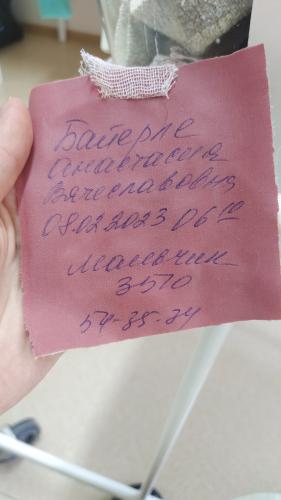 Байерле
Анастасия
Вячеславовна
08.02.2023 06 10
Мальчик
3570
54-35-34